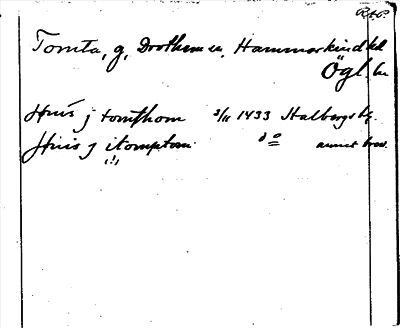 R.A.P.
Tomta, g, Drothem sn, Hammarkind hd
Ögl. ln
Hws j tompthom 3/11 1433 Halbergs
Hwis j itomptom d:o annat brev.
(!)